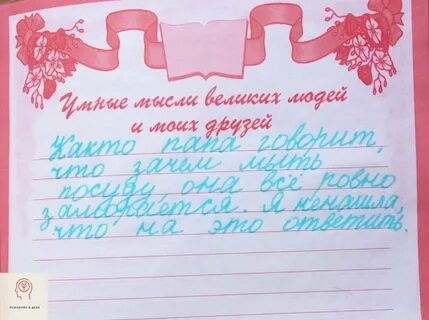 Умные мысли великих людей
и моих друзей
Както папа говорит,
что зачем мыть
посуду она всё ровно
заморается. Я ненашла,
что на это ответить.